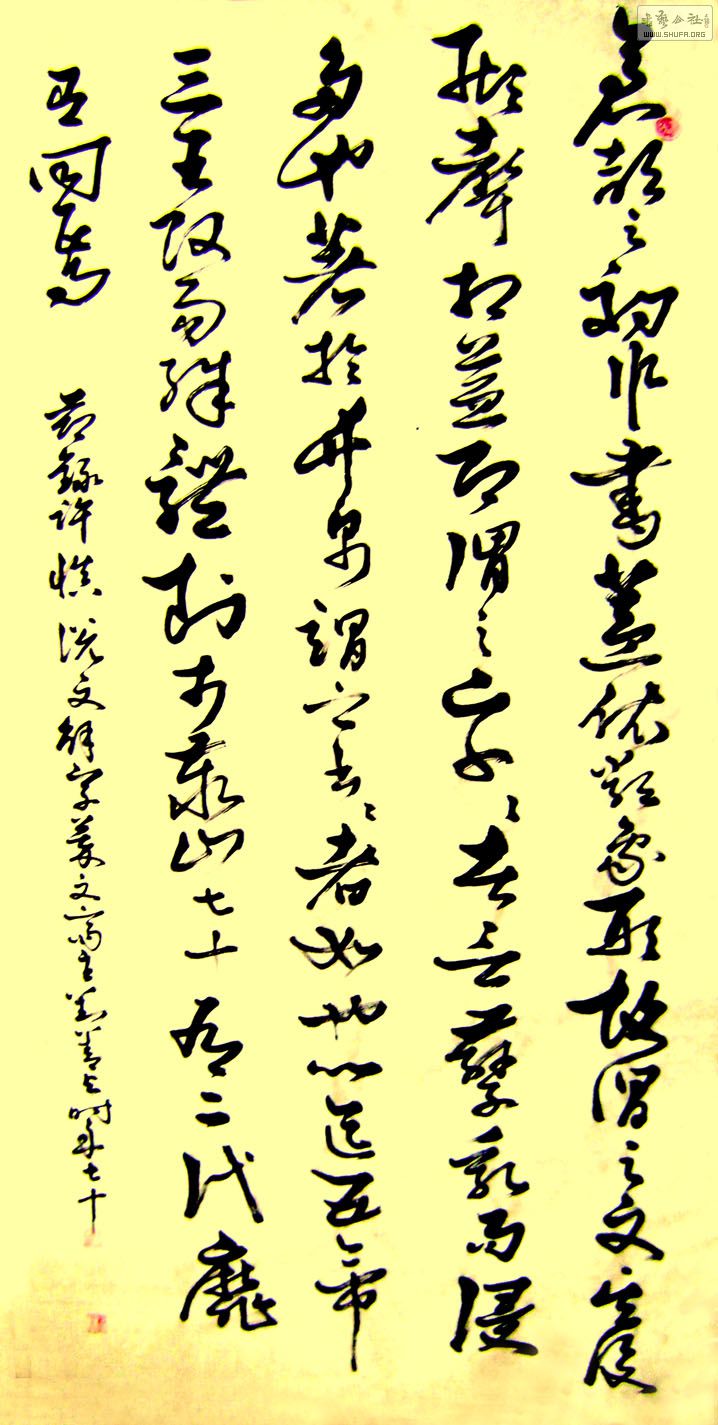 倉頡之初作書蓋依類象形故謂之文其後
形聲相益即謂之字〻者言孳乳而浸
多也著於竹帛謂之書〻者如也以迄五帝
三王改易殊體封于泰山七十有二代靡
有同焉
節錄許慎說文解字叙文 時年七十
书艺公社
WWW.SHUFA.ORG